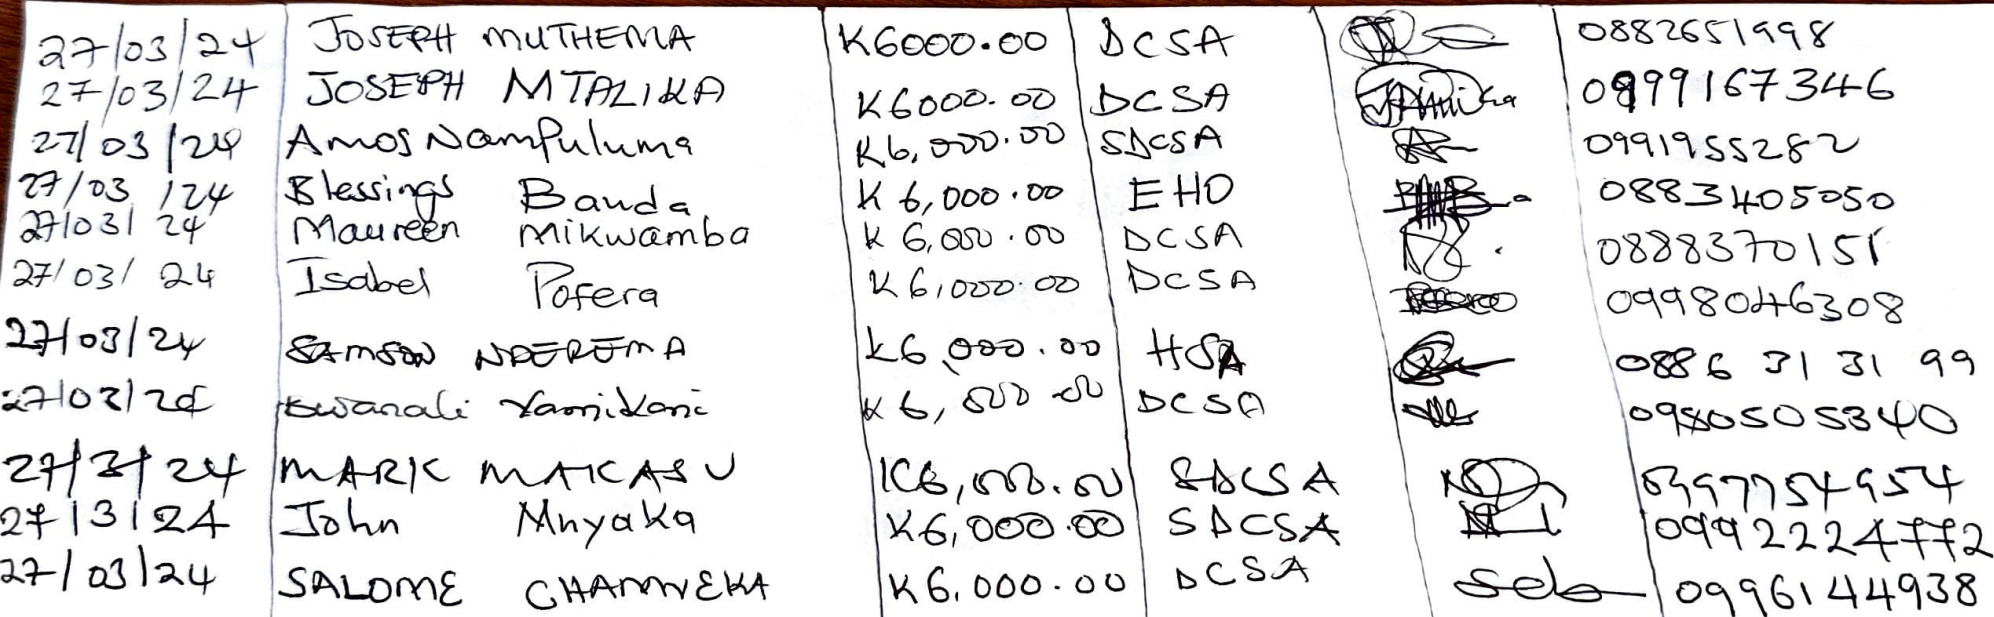 27/03/24 JOSEPH MUTHEMA K6000.00 DCSA 0882651998
27/03/24 JOSEPH MTALIKA K6000.00 DCSA 0999167346
27/03/24 Amos Nampuluma K6,000.00 SDCSA 0991955282
27/03/24 Blessings Banda K 6,000.00 EHO 0883405050
27/03/24 Maureen Mikwamba K 6,000.00 DCSA 0888370151
27/03/24 Isabel Pofera K 6,000.00 DCSA 0998046308
27/03/24 SAMSON NDEREMA K6,000.00 HSA 0886 31 31 99
27/03/24 Kwanali Yamikani K 6,000.00 DCSA 0980505340
27/3/24 MARK MAKASU K6,000.00 SDCSA 0997754954
27/3/24 John Mnyaka K6,000.00 SDCSA 0992224772
27/03/24 SALOME K6,000.00 DCSA 0996144938